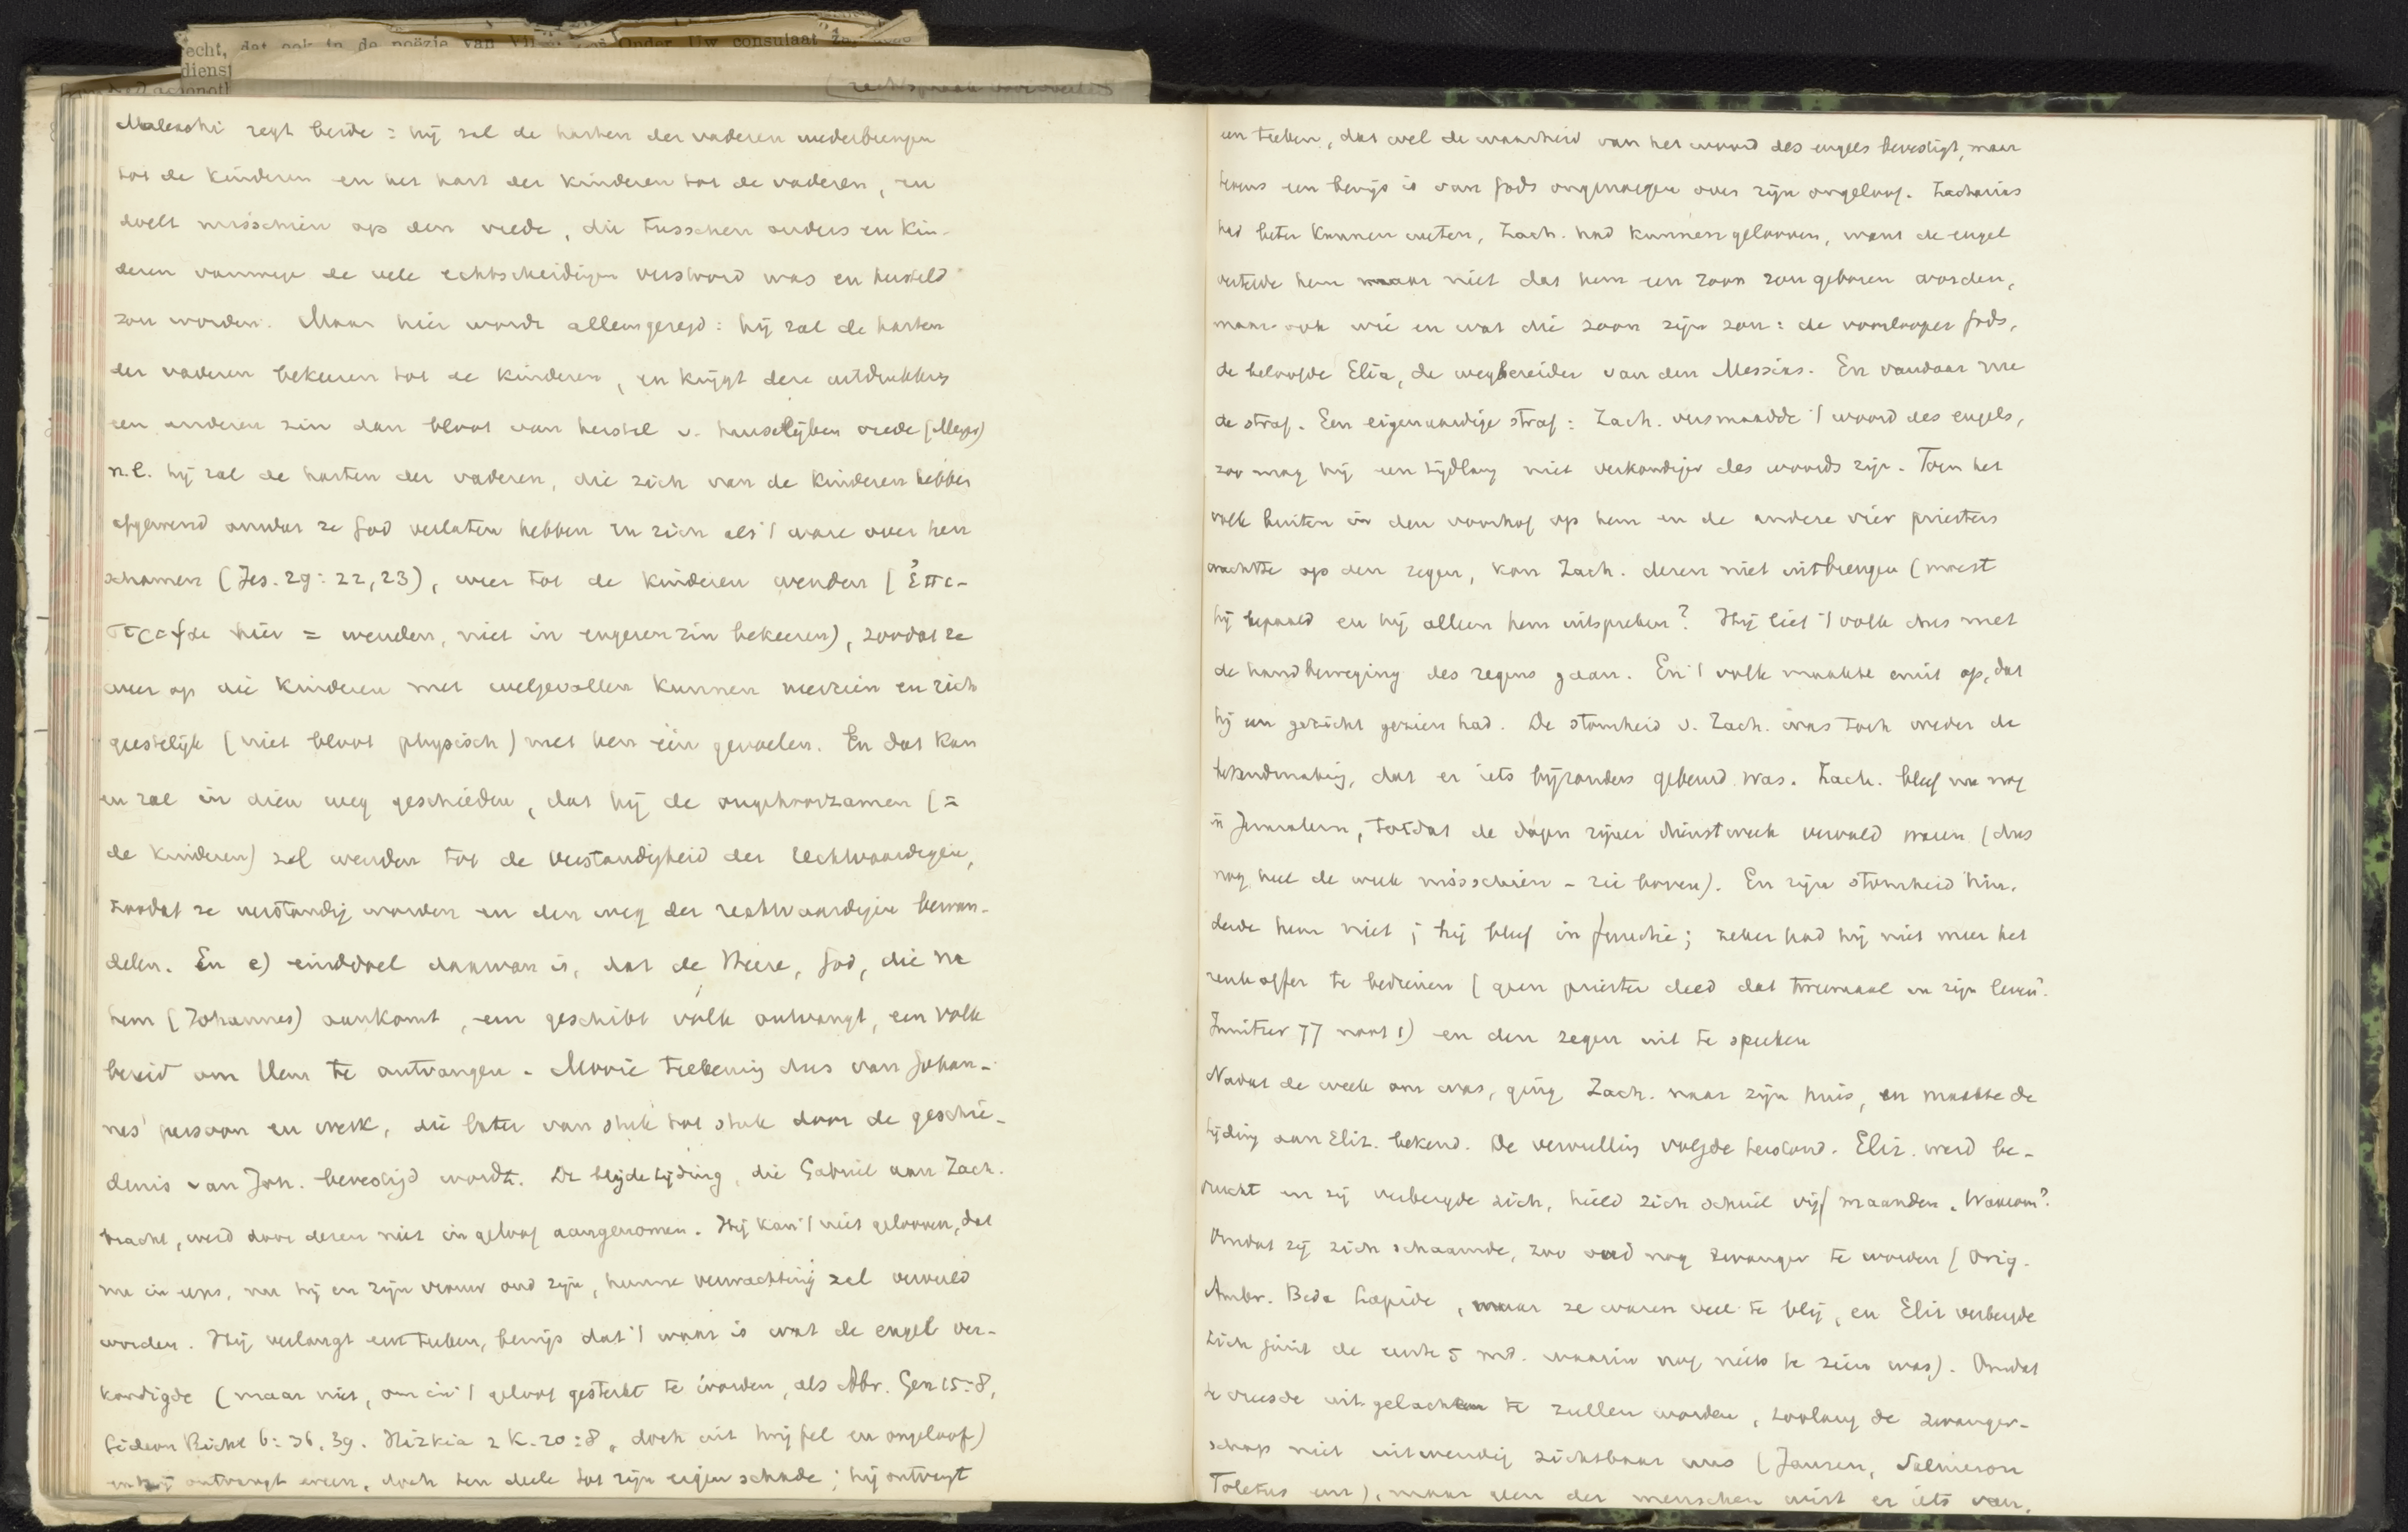 echt, dat ook in de poëzie van Onder Uw consulaat
dienst
Maleachi zegt beide: hij zal de harten der vaderen wederbrengen
tot de kinderen en het hart der kinderen tot de vaderen, en
doelt misschien op den vrede, die tusschen ouders en kin-
deren vanwege de vele echtscheidingen verstoord was en hersteld
zou worden. Maar hier wordt alleen gezegd: hij zal de harten
der vaderen bekeeren tot de kinderen, en krijgt deze uitdrukking
een anderen zin dan bloot van herstel v. huiselijken vrede (Meyer)
n.l. hij zal de harten der vaderen, die zich van de kinderen hebben
afgewend omdat ze God verlaten hebben en zich als 't ware over hen
schamen (Jes. 29:22,23), weer tot de kinderen wenden (ἐπι-
στρεψαι hier = wenden, niet in engeren zin bekeeren), zoodat ze
weer op die kinderen met welgevallen kunnen neerzien en zich
geestelijk (niet bloot physisch) met hen één gevoelen. En dat kan
en zal in dien weg geschieden, dat hij de ongehoorzamen (=
de kinderen) zal wenden tot de verstandigheid der rechtvaardigen,
zoodat ze verstandig worden en den weg der rechtvaardigen bewan-
delen. En e) einddoel daarvan is, dat de Heere, God, die na
hem (Johannes) aankomt, een geschikt volk ontvangt, een volk
bereid om Hem te ontvangen. Mooie teekening dus van Johan-
nes' persoon en werk, die later van stuk tot stuk door de geschie-
denis van Joh. bevestigd wordt. De blijde tijding, die Gabriel aan Zach.
bracht, werd door dezen niet in geloof aangenomen. Hij kan 't niet gelooven, dat
nu hij en zijn vrouw oud zijn, hunne verwachting zal vervuld
worden. Hij verlangt een teeken, bewijs dat 't waar is wat de engel ver-
kondigde (maar niet, om in 't geloof gesterkt te worden, als Abr. Gen 15:8,
Gideon Richt 6:36,39. Hizkia 2 K. 20:8, doch uit twijfel en ongeloof)
en hij ontvangt er een, doch ten deele tot zijn eigen schade; hij ontvangt
een teeken, dat wel de waarheid van het woord des engels bevestigt, maar
tevens een bewijs is van Gods ongenoegen over zijn ongeloof. Zacharias
had beter kunnen weten, Zach. had kunnen gelooven, want de engel
vertelde hem maar niet dat hem een zoon zou geboren worden,
maar ook wie en wat die zoon zijn zou: de voorlooper Gods,
de beloofde Elia, de wegbereider van den Messias. En vandaar nu
de straf. Een eigenaardige straf: Zach. versmaadde 't woord des engels,
zoo mag hij een tijdlang niet verkondiger des woords zijn. Toen het
volk buiten in den voorhof op hem en de andere vier priesters
wachtte op den zegen, kon Zach. dezen niet uitbrengen (moest
hij bepaald en hij alleen hem uitspreken? Hij liet 't volk dus met
de handbeweging des zegens gaan. En 't volk maakte eruit op, dat
hij een gezicht gezien had. De stomheid v. Zach. was toch weder de
bekendmaking, dat er iets bijzonders gebeurd was. Zach. bleef nu nog
in Jeruzalem, totdat de dagen zijner dienstweek vervuld waren (dus
nog heel de week misschien - zie boven). En zijn stomheid hin-
derde hem niet; hij bleef in functie; zeker had hij niet meer het
reukoffer te bedienen (geen priester deed dat tweemaal in zijn leven?
77 noot 1) en den zegen uit te spreken
Nadat de week om was, ging Zach. naar zijn huis, en maakte de
tijding aan Eliz. bekend. De vervulling volgde terstond. Eliz. werd be-
vrucht en zij verbergde zich, hield zich schuil vijf maanden. Waarom?
Omdat zij zich schaamde, zoo oud nog zwanger te worden (Orig.
Ambr. Beda Lapide, maar ze waren veel te blij, en Eliz verbergde
zich juist de eerste 5 md. waarin nog niets te zien was). Omdat
ze vreesde uitgelachen te zullen worden, zoolang de zwanger-
schap niet uitwendig zichtbaar was (Jansen, Salmeron
Toletus enz), maar geen der menschen wist er iets van.